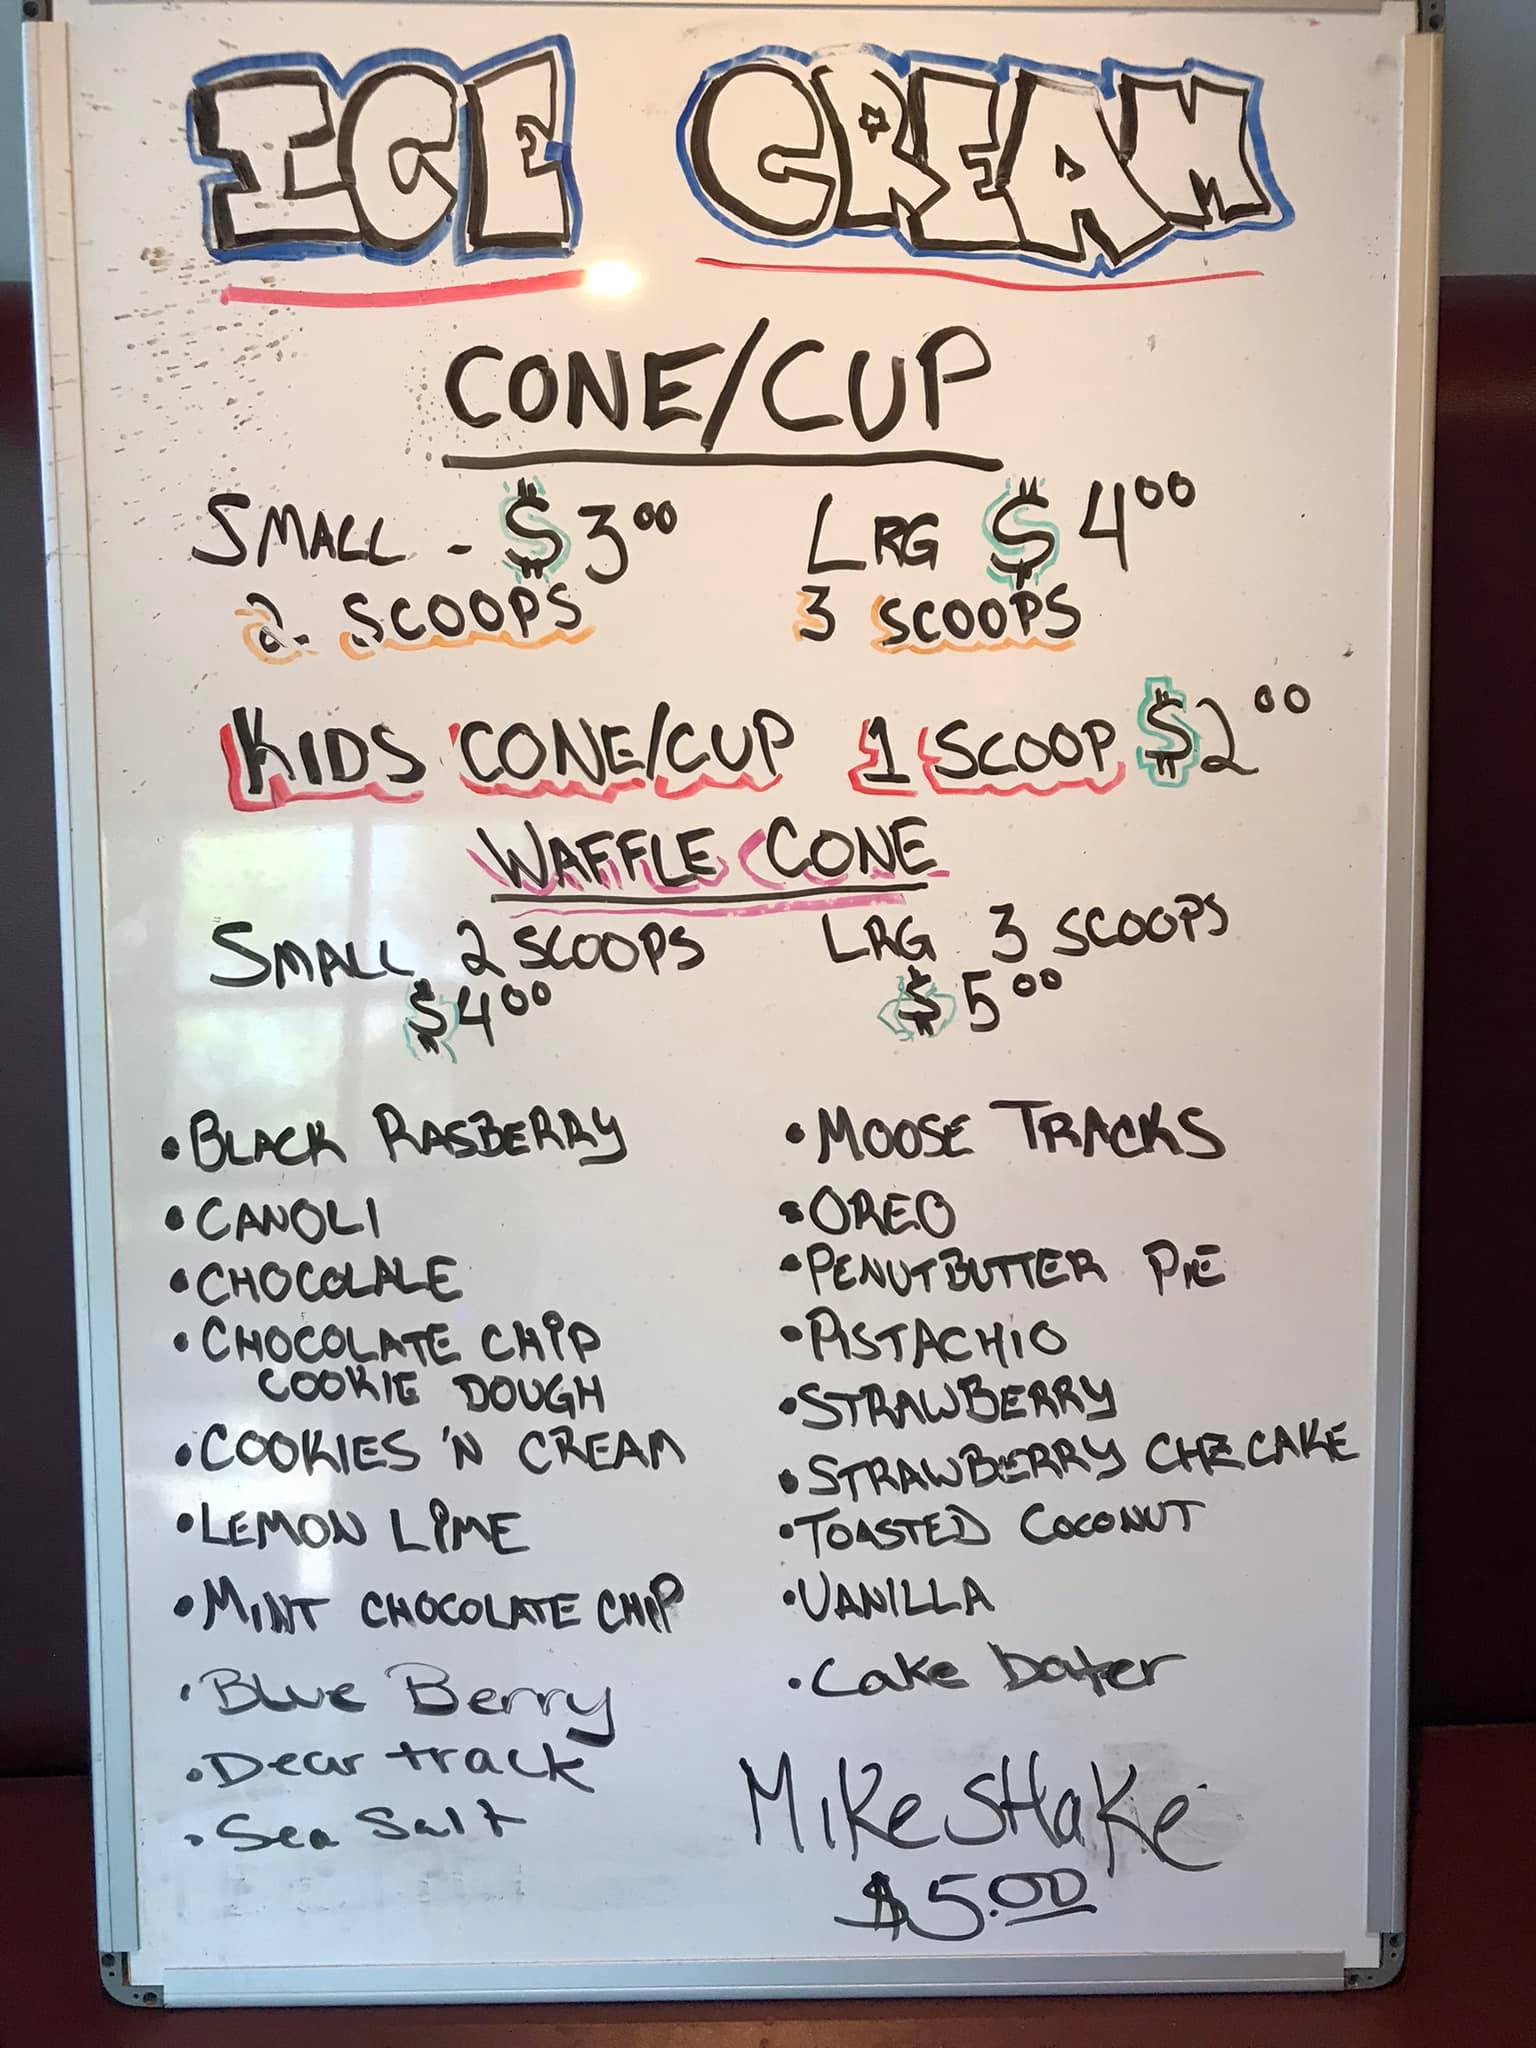 ICE CREAM
CONE/CUP
SMALL - $3.00 LRG $4.00
2 SCOOPS 3 SCOOPS
KIDS CONE/CUP 1 SCOOP $2.00
WAFFLE CONE
SMALL 2 SCOOPS LRG 3 SCOOPS
$4.00 $5.00
• BLACK RASBERRY
• CANOLI
• CHOCOLALE
• CHOCOLATE CHIP
COOKIE DOUGH
• COOKIES 'N CREAM
• LEMON LIME
• MINT CHOCOLATE CHIP
• Blue Berry
• Dear track
• Sea Salt
• MOOSE TRACKS
• OREO
• PENUTBUTTER PIE
• PISTACHIO
• STRAWBERRY
• STRAWBERRY CHZCAKE
• TOASTED COCONUT
• VANILLA
• Cake bater
MiKeSHaKe
$5.00